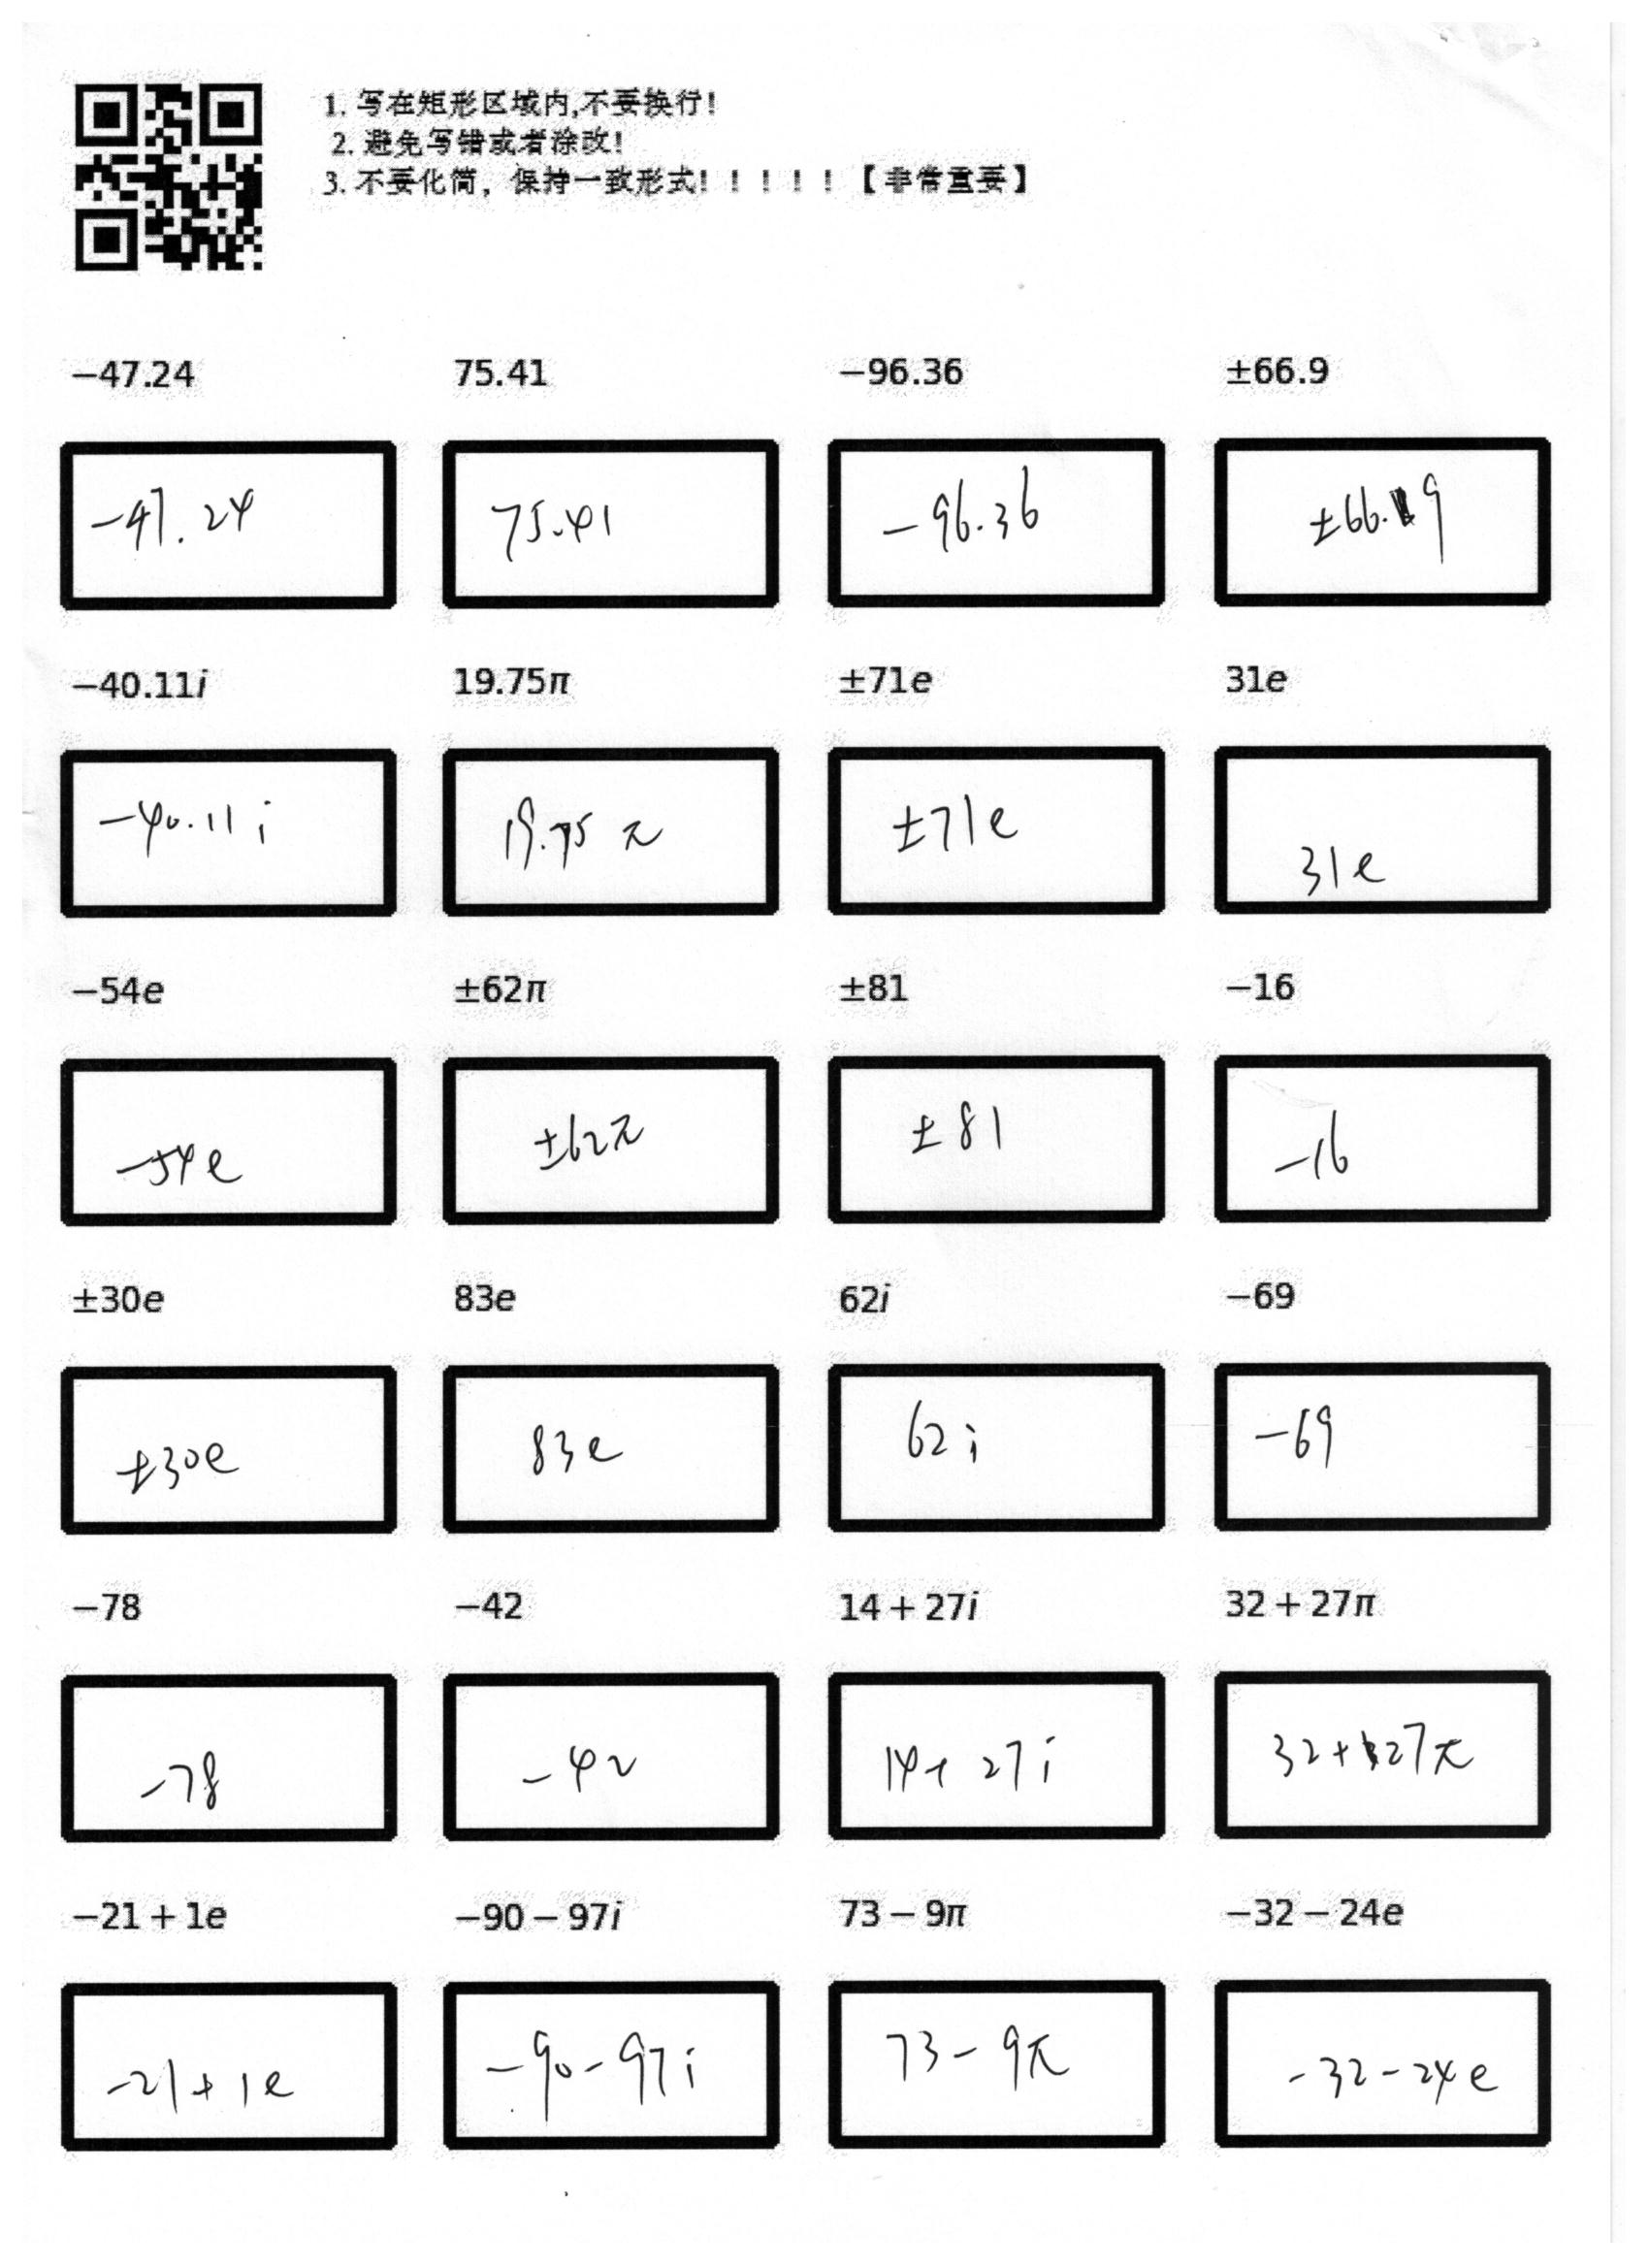 1. 写在矩形区域内,不要换行!
2. 避免写错或者涂改!
3. 不要化简，保持一致形式！！！！！【非常重要】
−47.24 75.41 −96.36 ±66.9
−47.24 75.41 −96.36 ±66.9
−40.11i 19.75π ±71e 31e
−40.11i 19.75π ±71e 31e
−54e ±62π ±81 −16
−54e ±62π ±81 −16
±30e 83e 62i −69
±30e 83e 62i −69
−78 −42 14 + 27i 32 + 27π
−78 −42 14 + 27i 32 + 27π
−21 + 1e −90 − 97i 73 − 9π −32 − 24e
−21 + 1e −90 − 97i 73 − 9π −32 − 24e